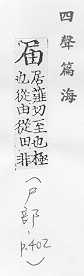 四聲篇海
届居薤切至也極
也從由從田非
(尸部,p.402)